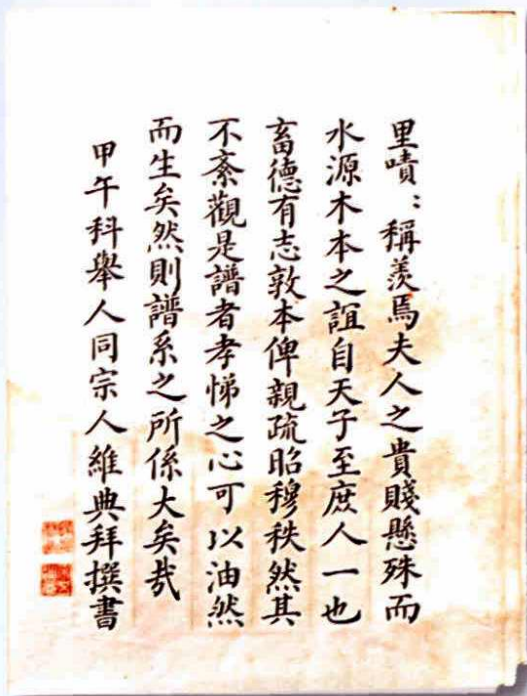 里嘖：稱羨焉夫人之貴賤懸殊而
水源木本之誼自天子至庶人一也
畜德有志敦本俾親疏昭穆秩然其
不紊觀是譜者孝悌之心可以油然
而生矣然則譜系之所係大矣哉
甲午科舉人同宗人維典拜撰書